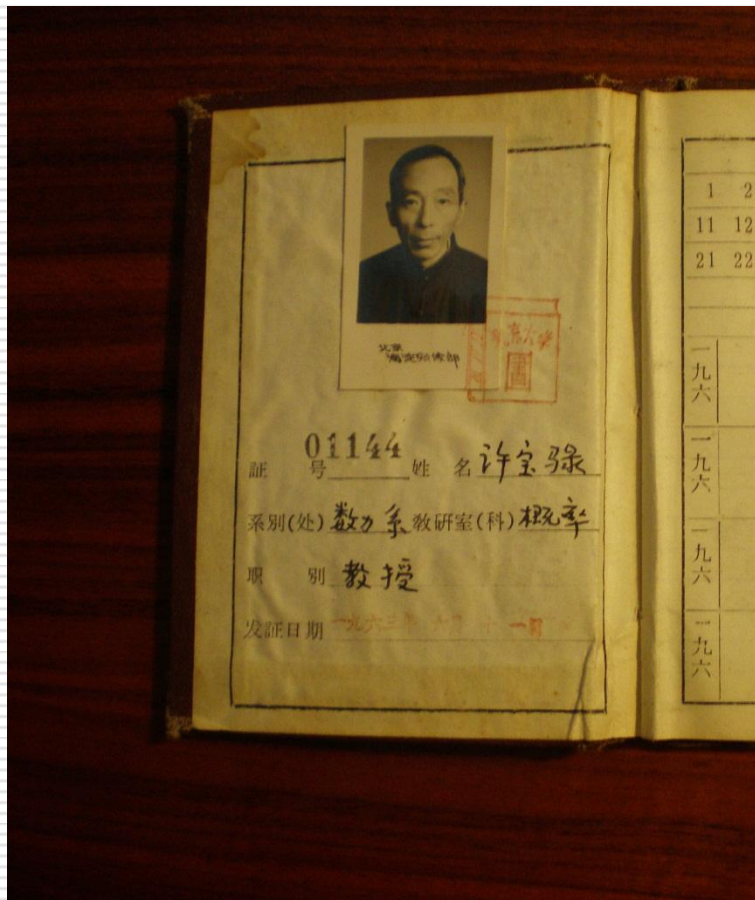 北京
海淀
证 号 01144 姓 名 许宝騄
系别(处) 数力系 教研室(科) 概率
职 别 教授
发証日期 一九六三年 十一日
1 2
11 12
21 22
一九六
一九六
一九六
一九六